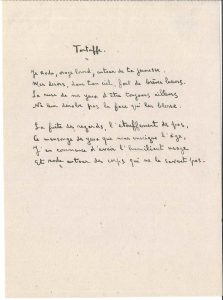 Tartuffe.
Je rode, orage lourd, autour de ta jeunesse.
Mes désirs, dans ton ciel, font de brèves lueurs.
La ruse de mes yeux d'être toujours ailleurs
Ne leur dérobe pas la face qui les blesse.
La fuite des regards, l'étouffement des pas,
Le mensonge de ceux que nous enseigne l'âge,
J'en commence d'avoir l'humiliant usage
Et rode autour des corps qui ne le savent pas.